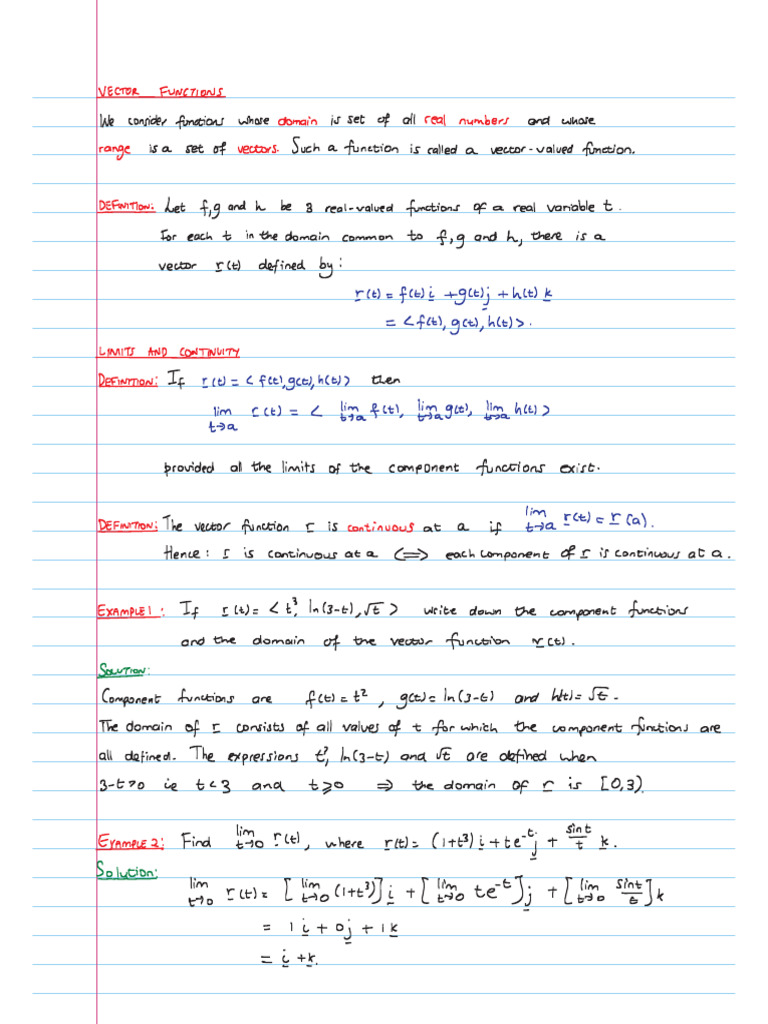 VECTOR FUNCTIONS
We consider functions whose domain is set of all real numbers and whose
range is a set of vectors. Such a function is called a vector-valued function.
DEFINITION: Let f,g and h be 3 real-valued functions of a real variable t.
For each t in the domain common to f,g and h, there is a
vector r(t) defined by:
r(t) = f(t) i + g(t) j + h(t) k
= <f(t), g(t), h(t)>.
LIMITS AND CONTINUITY
DEFINITION: If r(t) = <f(t), g(t), h(t)> then
lim t→a r(t) = < lim t→a f(t), lim t→a g(t), lim t→a h(t)>
provided all the limits of the component functions exist.
DEFINITION: The vector function r is continuous at a if lim t→a r(t) = r(a).
Hence: r is continuous at a ⟺ each component of r is continuous at a.
EXAMPLE 1: If r(t) = <t³, ln(3-t), √t> write down the component functions
and the domain of the vector function r(t).
SOLUTION:
Component functions are f(t) = t², g(t) = ln(3-t) and h(t) = √t.
The domain of r consists of all values of t for which the component functions are
all defined. The expressions t³, ln(3-t) and √t are defined when
3-t>0 ie t<3 and t⩾0 ⇒ the domain of r is [0,3).
EXAMPLE 2: Find lim t→0 r(t), where r(t) = (1+t³) i + te^-t j + sint/t k.
Solution:
lim t→0 r(t) = [lim t→0 (1+t³)] i + [lim t→0 te^-t] j + [lim t→0 sint/t] k
= 1 i + 0j + 1 k
= i + k.